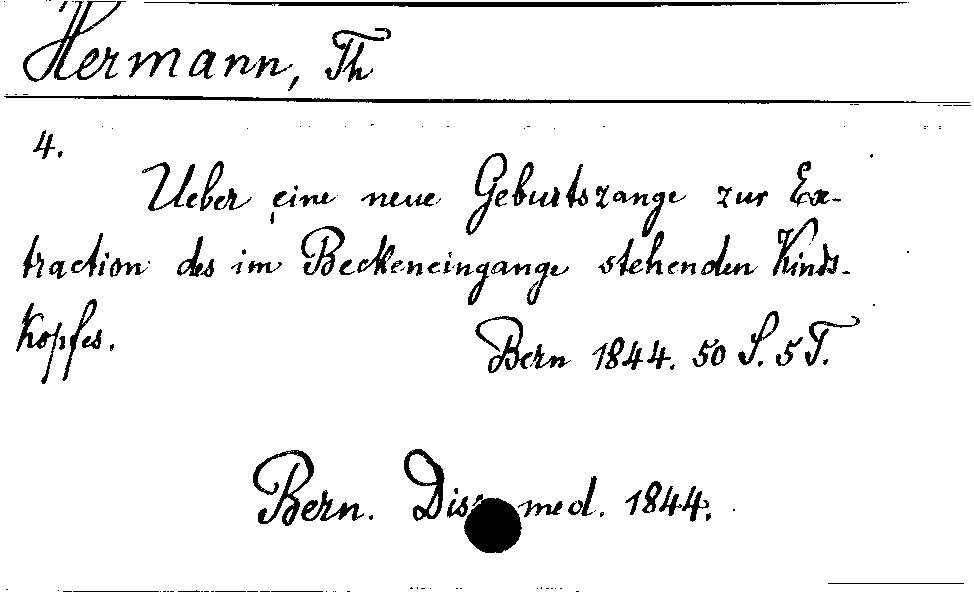 Hermann, Th
4.
Ueber eine neue Geburtszange zur Ex-
traction des im Beckeneingange stehenden Kinds-
kopfes.
Bern 1844. 50 S. 5 T.
Bern. Diss. med. 1844.